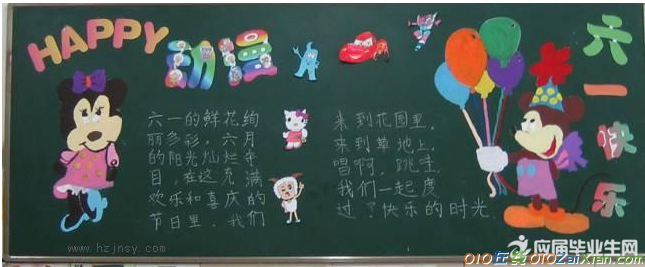 HAPPY
动漫
六一快乐
六一的鲜花绚
丽多彩，六月
的阳光灿烂夺
目，在这充满
欢乐和喜庆的
节日里，我们
来到花园里，
来到草地上，
唱啊，跳…
我们一起度
过了快乐的时光.
www.hzjnsy.com
应届毕业生网
010在线010zaixian.com